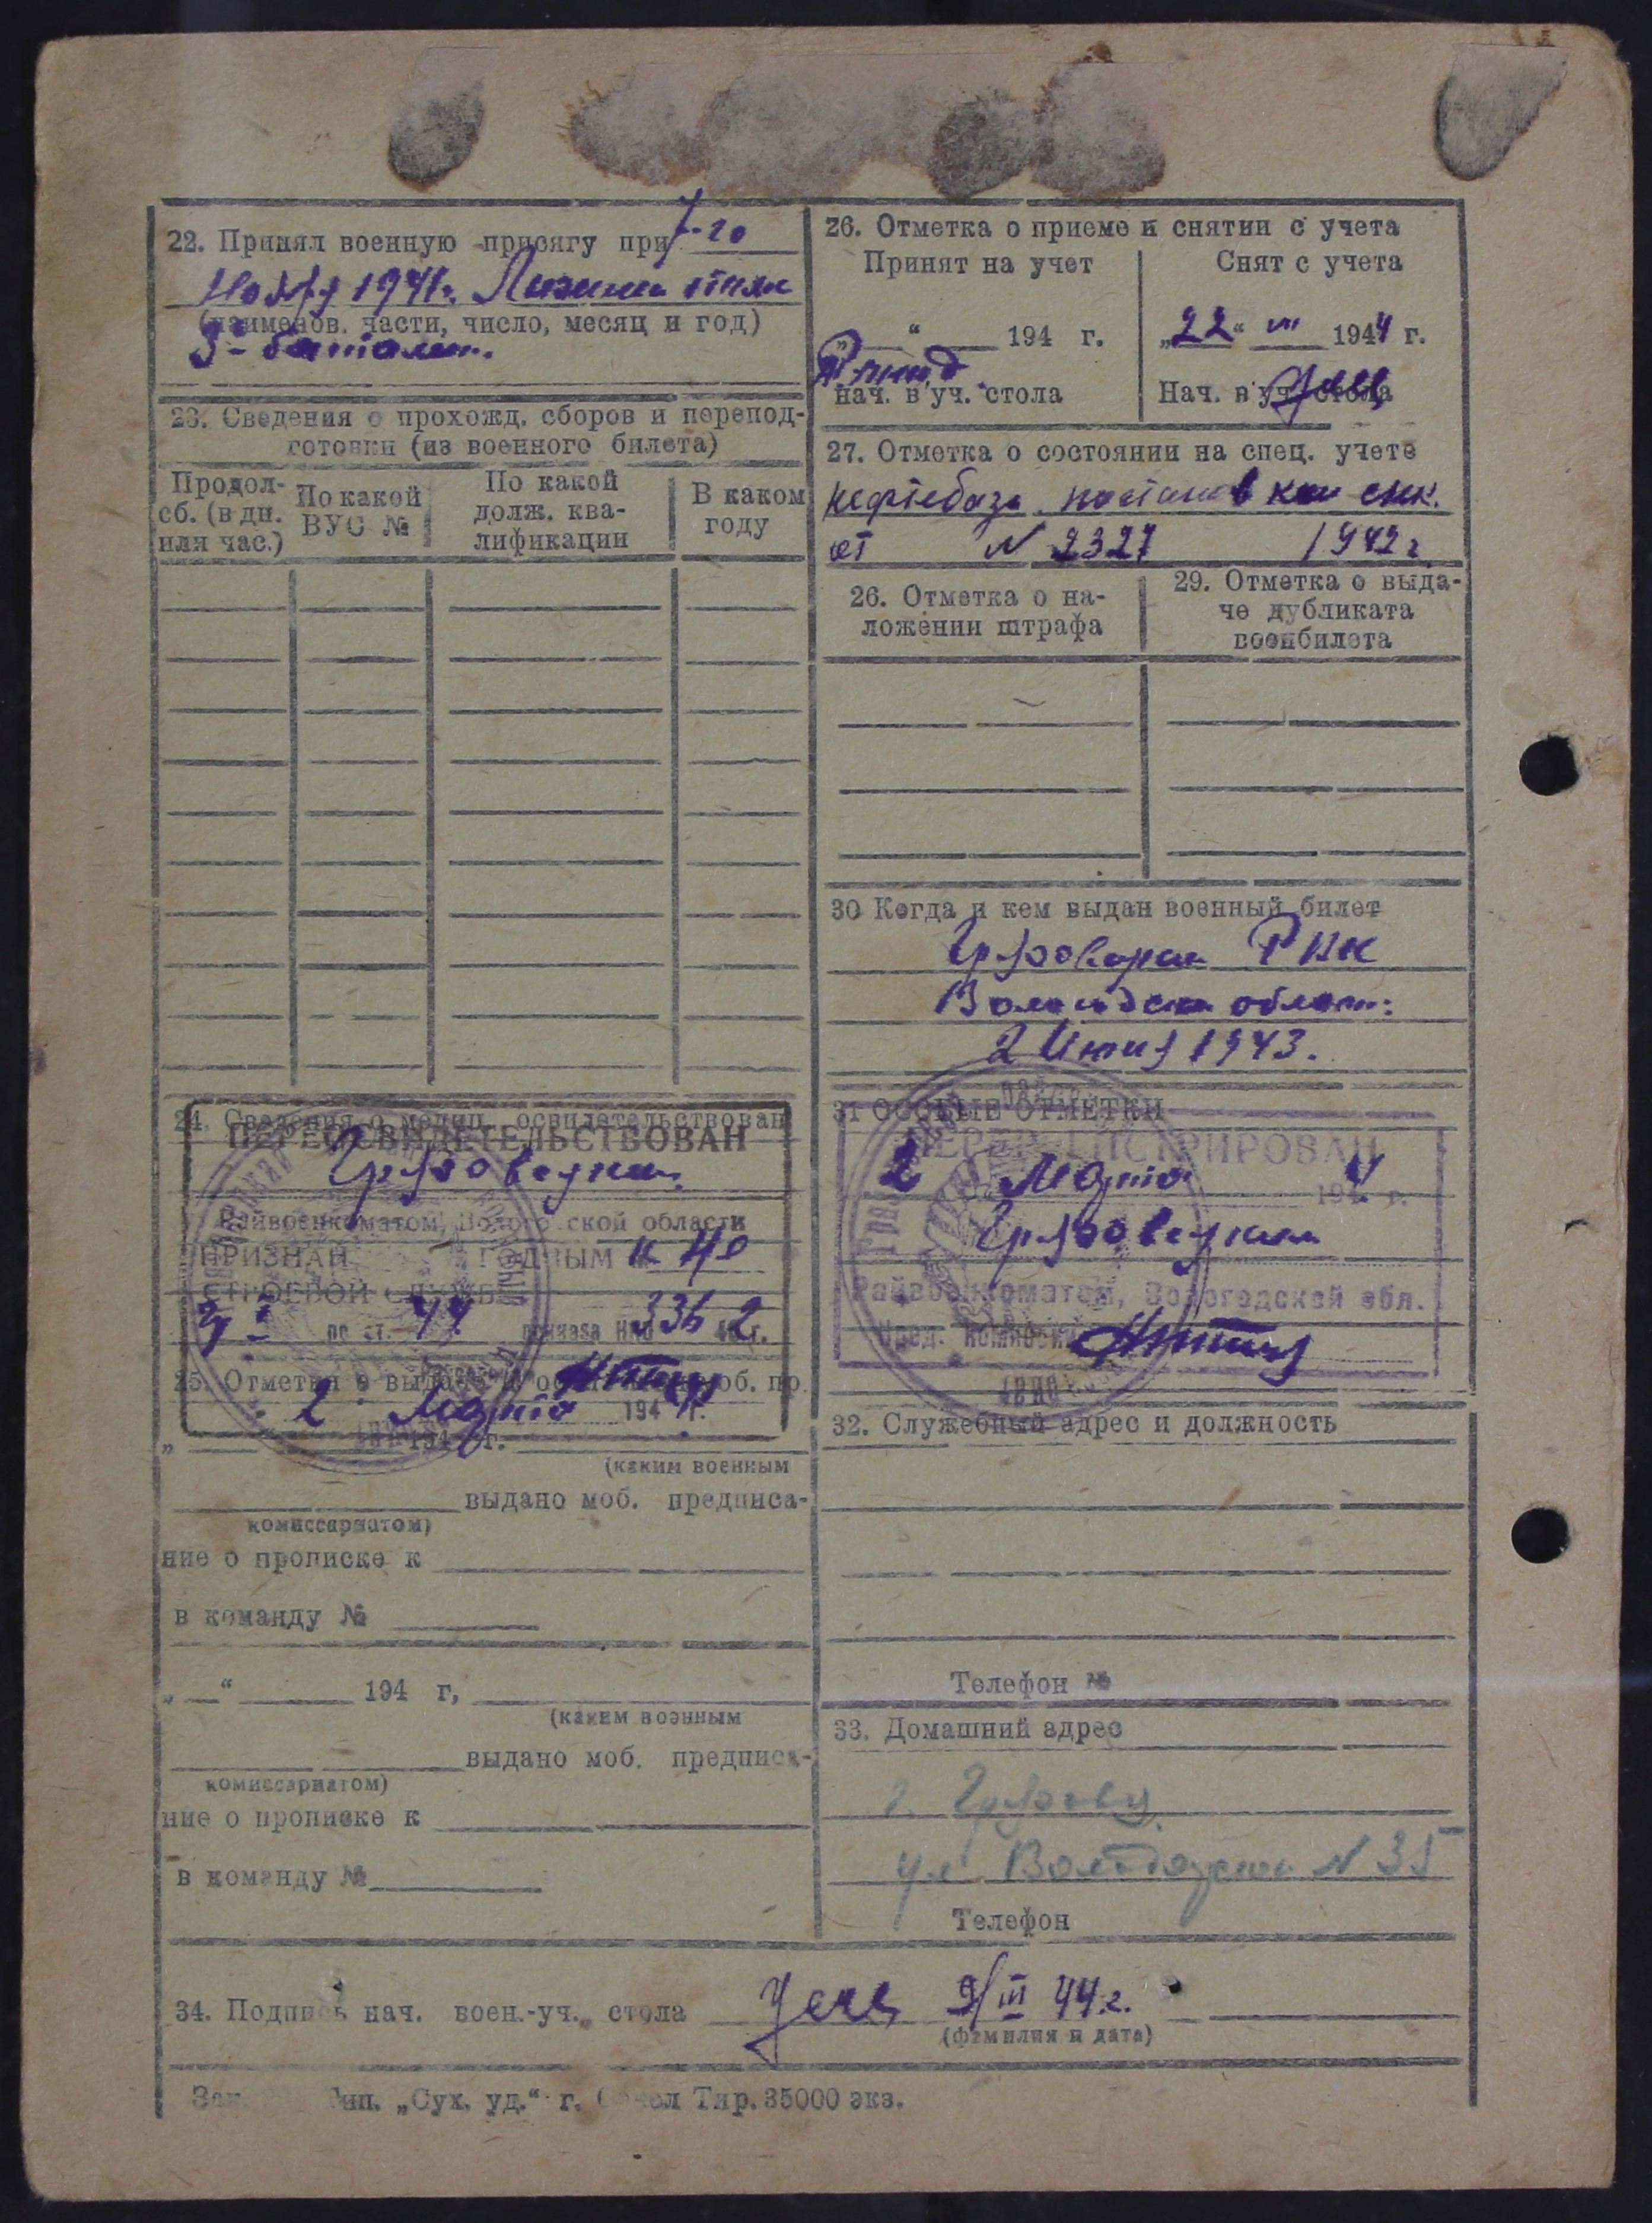 22. Принял военную присягу при 7-го
Ноября 1941г.
(наименов. части, число, месяц и год)
3й батальон.
23. Сведения о прохожд. сборов и перепод-
готовки (из военного билета)
Продол- сб. (в дн. или час.)
По какой ВУС №
По какой долж. ква- лификации
В каком году
24. Сведения о медиц. освидетельствован
ПЕРЕОСВИДЕТЕЛЬСТВОВАН
Грязовецким
Райвоенкоматом, Вологодской области
ПРИЗНАН ГОДНЫМ к не
СТРОЕВОЙ СЛУЖБЕ
по ст. 44 приказа НКО 336 42 г.
25. Отметка о выдаче моб. пр.
2 Марта 194 г.
„ 194 г.
(каким военным
выдано моб. предписа-
комиссариатом)
ние о прописке к
в команду №
„ “ 194 г,
(каким военным
выдано моб. предписа-
комиссариатом)
ние о прописке к
в команду №
26. Отметка о приеме и снятии с учета
Принят на учет
Снят с учета
„ “ 194 г.
„22“ VII 1944 г.
Нач. в уч. стола
Нач. в уч. стола
27. Отметка о состоянии на спец. учете
нефтебаза
от N 2327 1942 г
26. Отметка о на-
ложении штрафа
29. Отметка о выда-
че дубликата
военбилета
30 Когда и кем выдан военный билет
Грязовецким РВК
Вологодской област.
2 Июня 1943.
31 ОСОБЫЕ ОТМЕТКИ
ПЕРЕРЕГИСТРИРОВАН
2 Марта 1944 г.
Грязовецким
Райвоенкоматом, Вологодской обл.
Пред. комиссии
32. Служебный адрес и должность
Телефон №
33. Домашний адрес
г. Грязовец
ул. Володарского N 35
Телефон
34. Подпись нач. воен.-уч. стола 2/III 44 г.
(фамилия и дата)
Зак. Тип. „Сух. уд.“ г. Сокол Тир. 35000 экз.